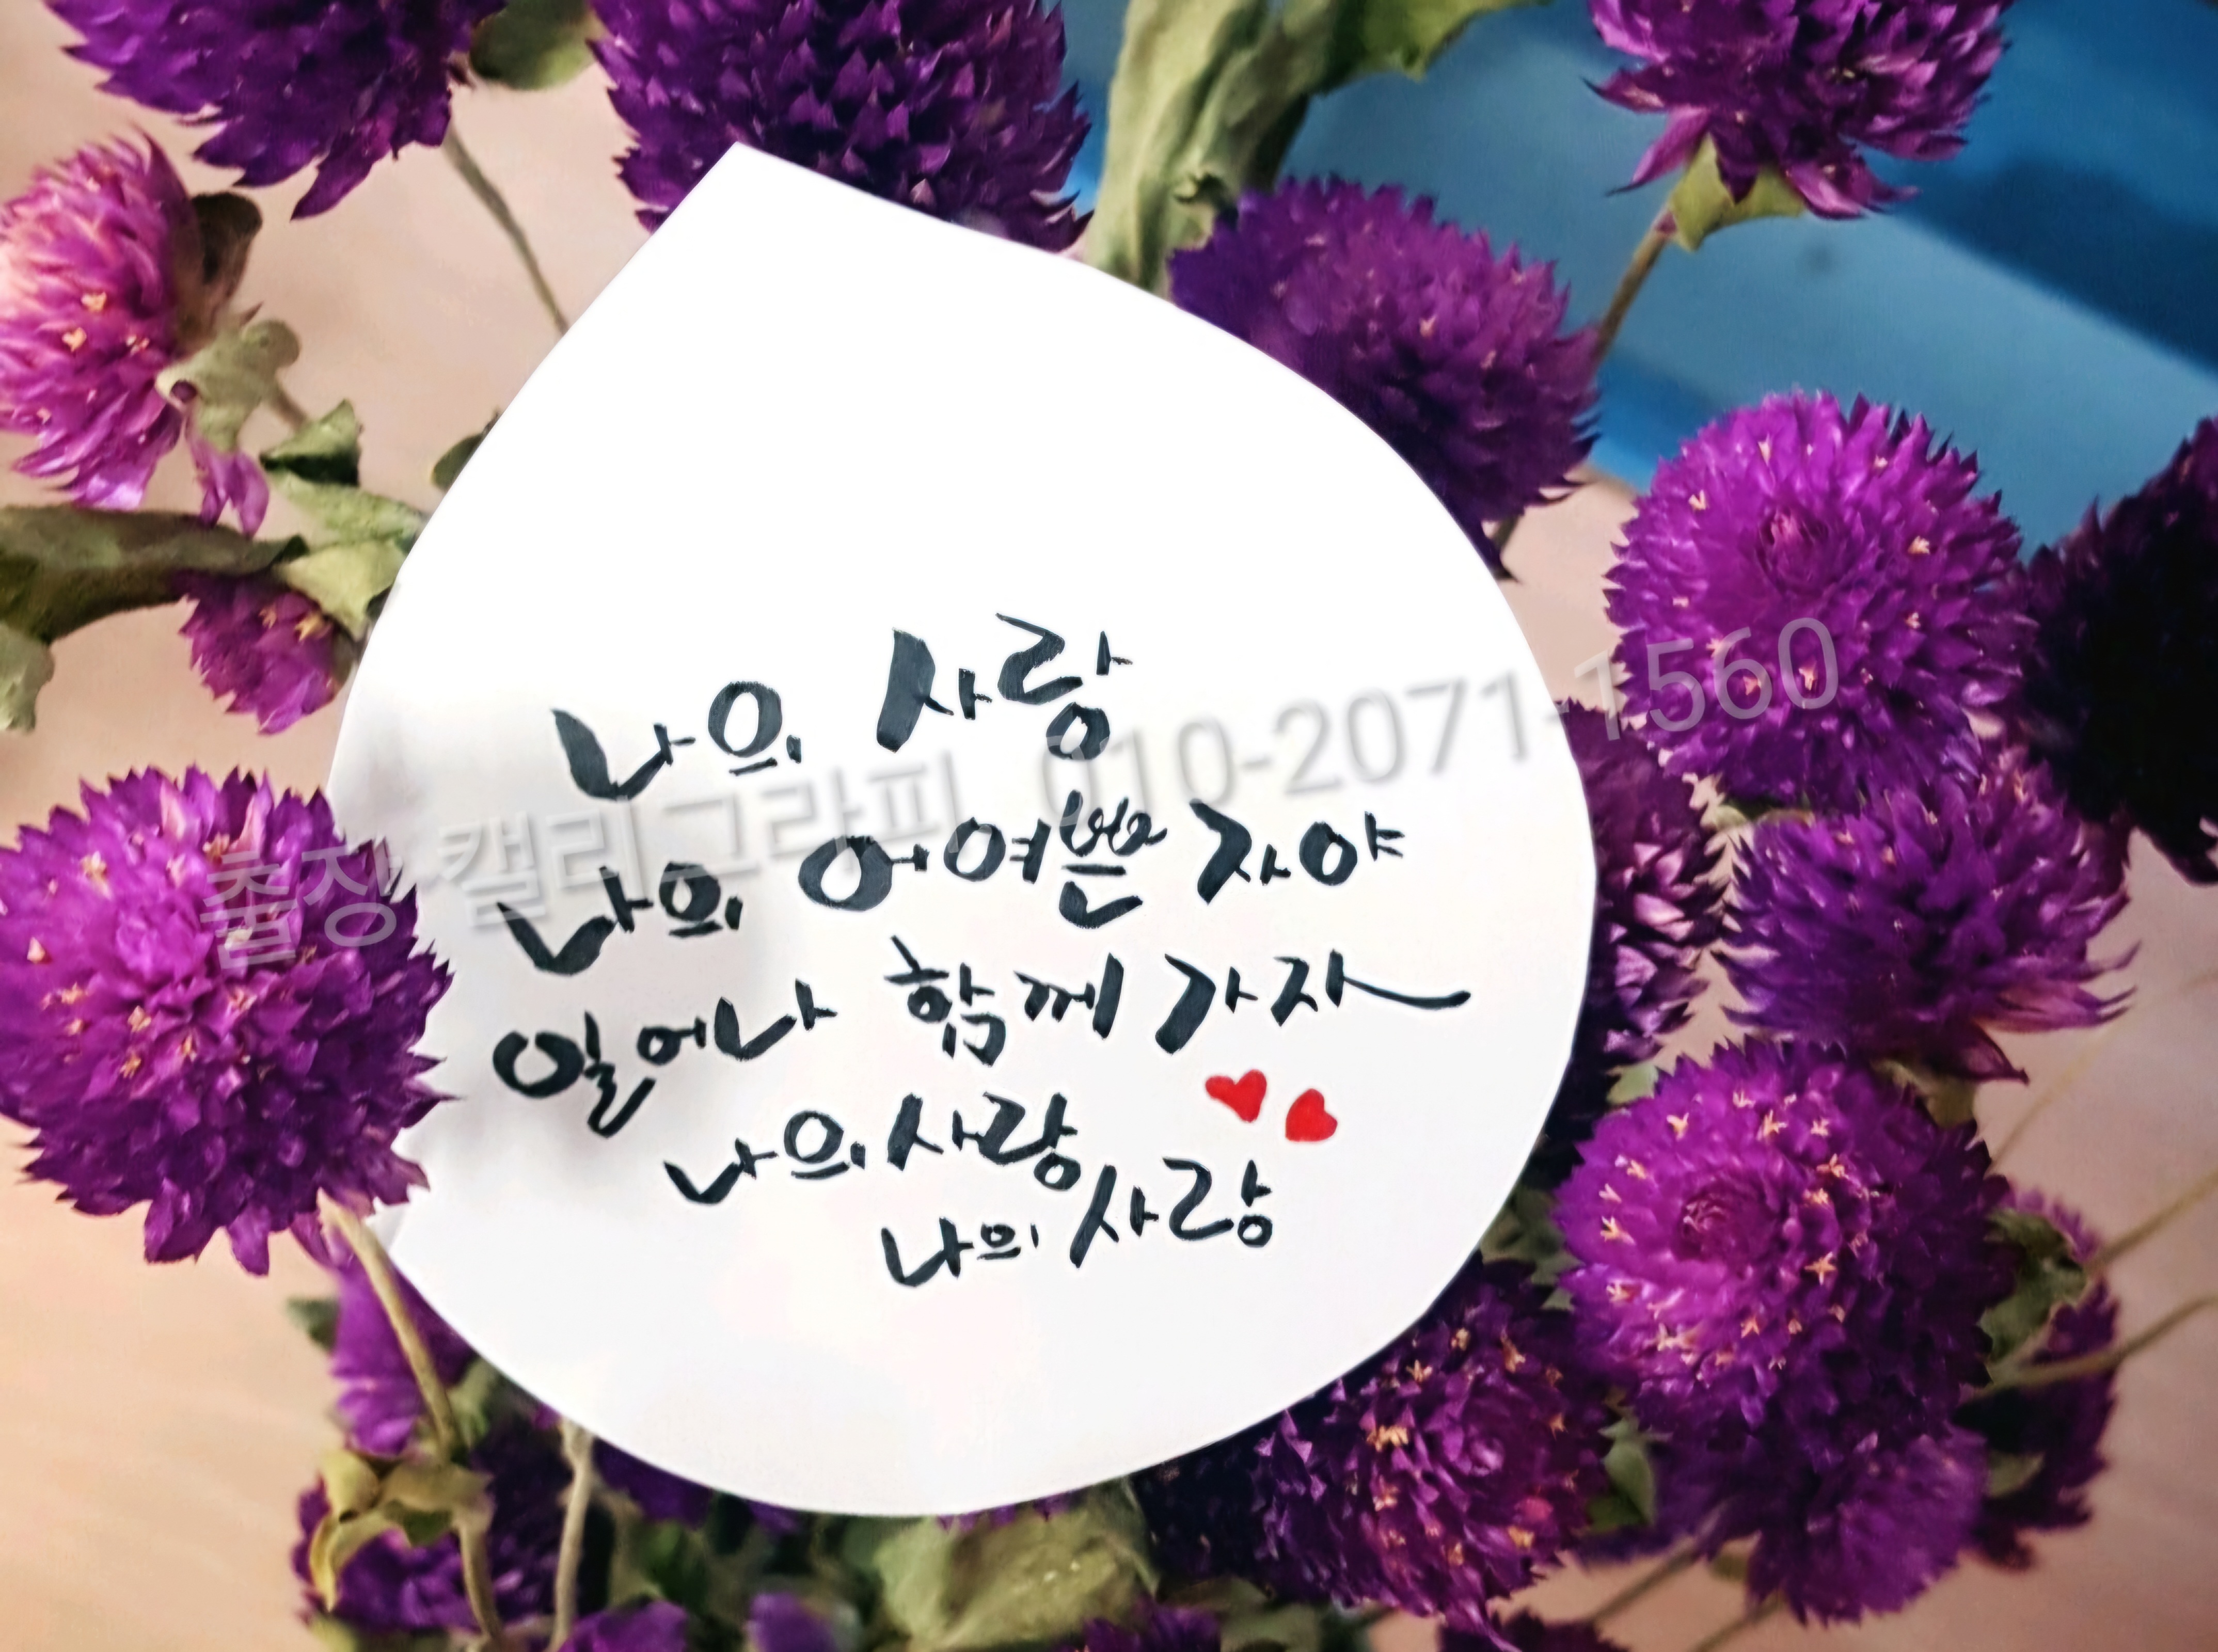 나의 사랑
나의 어여쁜 자야
일어나 함께 가자
나의 사랑
나의 사랑
출장 캘리그라피, 010-2071-1560